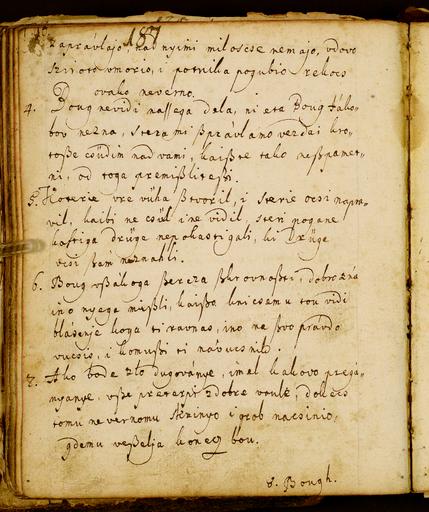 187
zapravlajo, nad nyimi milosese nemajo, vdovo
sziroto vmorio, i potuilia pogubio rekocs
ovako neverno.
4. Boug nevidi nassega dela, ni eta Boug Jáko-
bov nezna, stera mi szprávlamo vezdai kro-
tosse csüdim nad vami, kaiszte tako neszpamet-
ni, od toga premislitesi.
5. Koterie vre vüha sztvoril, i sterie ocsi napra-
vil, kaibi ne csül ine vidil, steri pogane
kastiga drüge nepokastigali, ki drüge
vcsi szam neznabli.
6. Boug vszákoga szercza szkrovnoszti, dobro zná
ino nyega miszli, kaiszo knicsemu tou vidi
blásenje koga ti ravnas, ino na szvo pravdo
vucsis, i komuszi ti návucsnik.
7. Ako bode zlo dugoványe, imel kakovo prega-
nyanye, vsze preterpi zdobre voule, dokecs
tomu nevernomu Skrinyo i grob nacsinio,
gdemu veszelja konecz bou.
8. Bough.